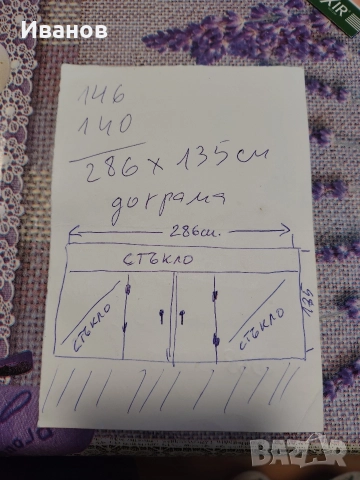 Иванов
146
140
286 x 135 см
дограма
286см.
СТЪКЛО
СТЪКЛО
СТЪКЛО
135
bazar